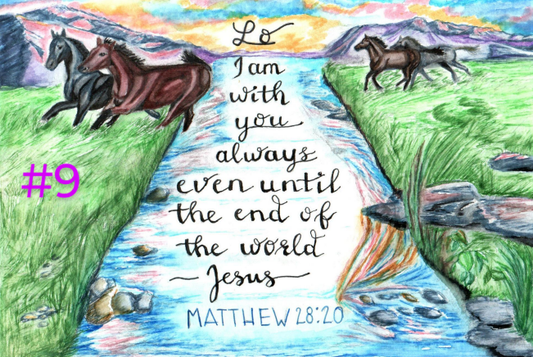 Lo
I am
with
you
always
even until
the end of
the world
~Jesus~
MATTHEW 28:20
#9